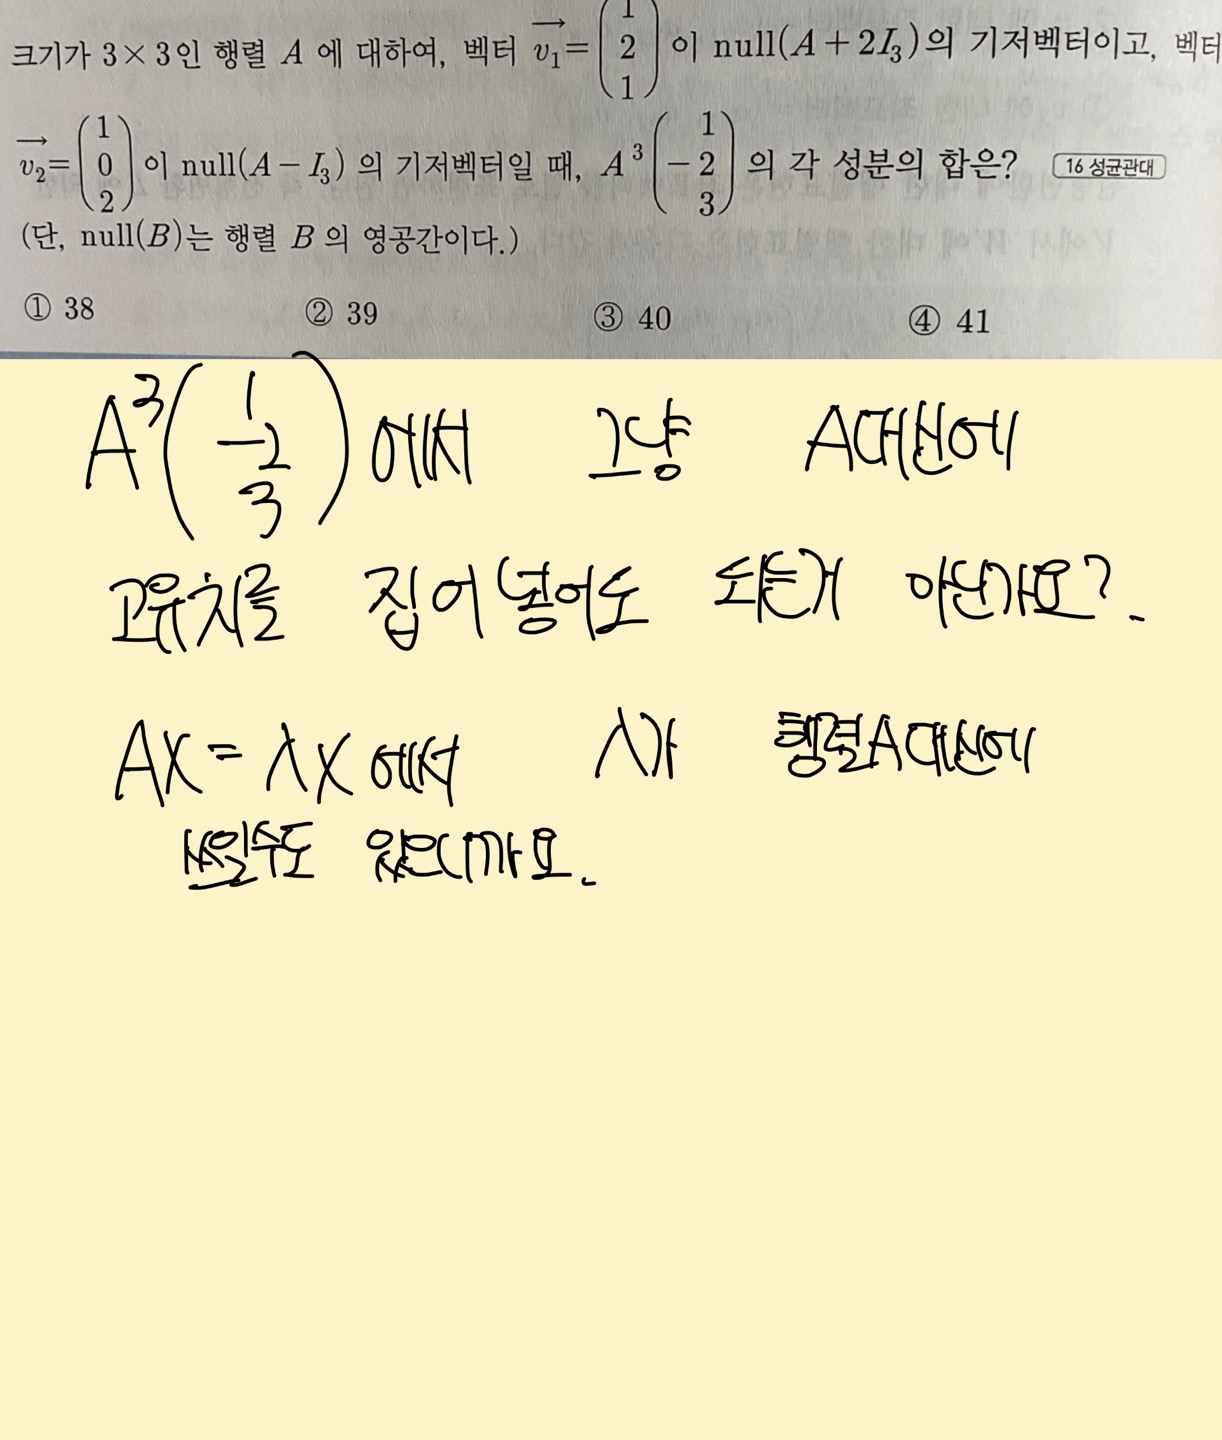 크기가 3×3인 행렬 A 에 대하여, 벡터 v₁ = (1 2 1) 이 null(A+2I₃)의 기저벡터이고, 벡터
v₂ = (1 0 2) 이 null(A−I₃) 의 기저벡터일 때, A³ (1 −2 3) 의 각 성분의 합은? 16 성균관대
(단, null(B)는 행렬 B 의 영공간이다.)
① 38 ② 39 ③ 40 ④ 41
A³ (1 −2 3) 에서 그냥 A대신에
고유치를 집어넣어도 되는거 아닌가요?.
AX = λX 에서 λ가 행렬A대신에
쓰일수도 있으니까요.